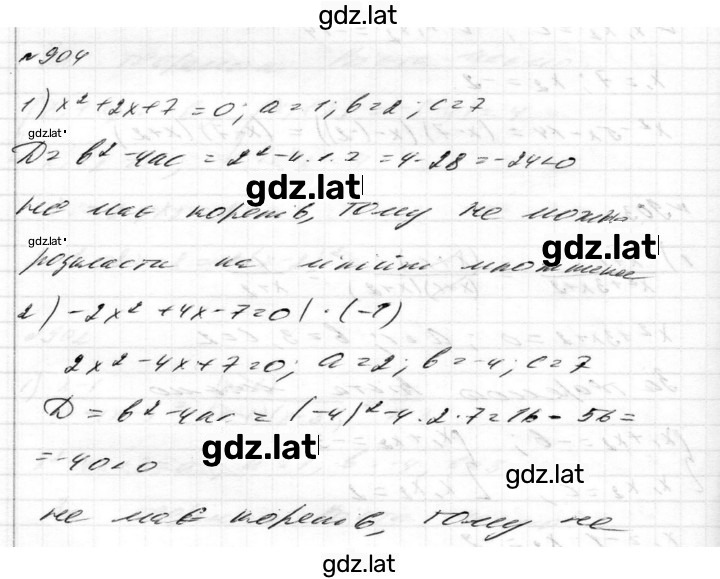 gdz.lat
№904
1) x² + 2x + 7 = 0; a = 1; b = 2; c = 7
gdz.lat
D = b² - 4ac = 2² - 4·1·7 = 4 - 28 = -24 < 0
gdz.lat
не має коренів, тому не можна
gdz.lat
gdz.lat
розкласти на лінійні множники
2) -2x² + 4x - 7 = 0 | · (-1)
2x² - 4x + 7 = 0; a = 2; b = -4; c = 7
D = b² - 4ac = (-4)² - 4·2·7 = 16 - 56 =
gdz.lat
= -40 < 0
gdz.lat
не має коренів, тому не
gdz.lat